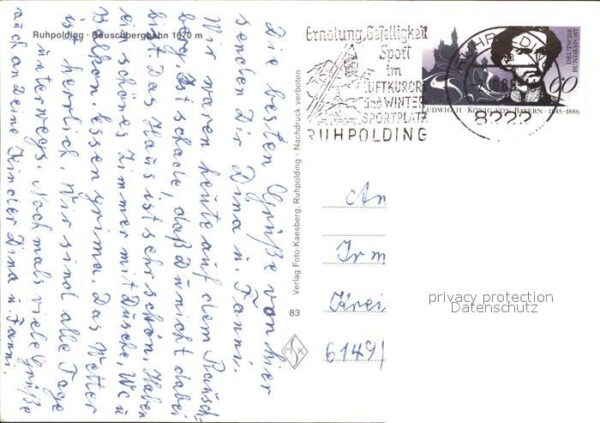 Ruhpolding · Rauschbergbahn 1670 m
Die besten Grüße von hier
senden Dir Dina u. Fanni.
Wir waren heute auf dem Rausch-
berg. Ist schade, daß Du nicht dabei
bist. Das Haus ist sehr schön. Haben
ein schönes Zimmer mit Dusche, WC u
Balkon. Essen prima. Das Wetter
ist herrlich. Wir sind alle Tage
unterwegs. Nochmals viele Grüße
auch an Deine Kinder Dina u. Fanni.
Verlag Foto-Kaesberg, Ruhpolding · Nachdruck verboten
83
Erholung, Geselligkeit
Sport
im
LUFTKURORT
und WINTER
SPORTPLATZ
RUHPOLDING
8222
DEUTSCHE
BUNDESPOST
60
LUDWIG II · KÖNIG VON BAYERN · 1845-1886
An
Irm
Krei
6149/
privacy protection
Datenschutz